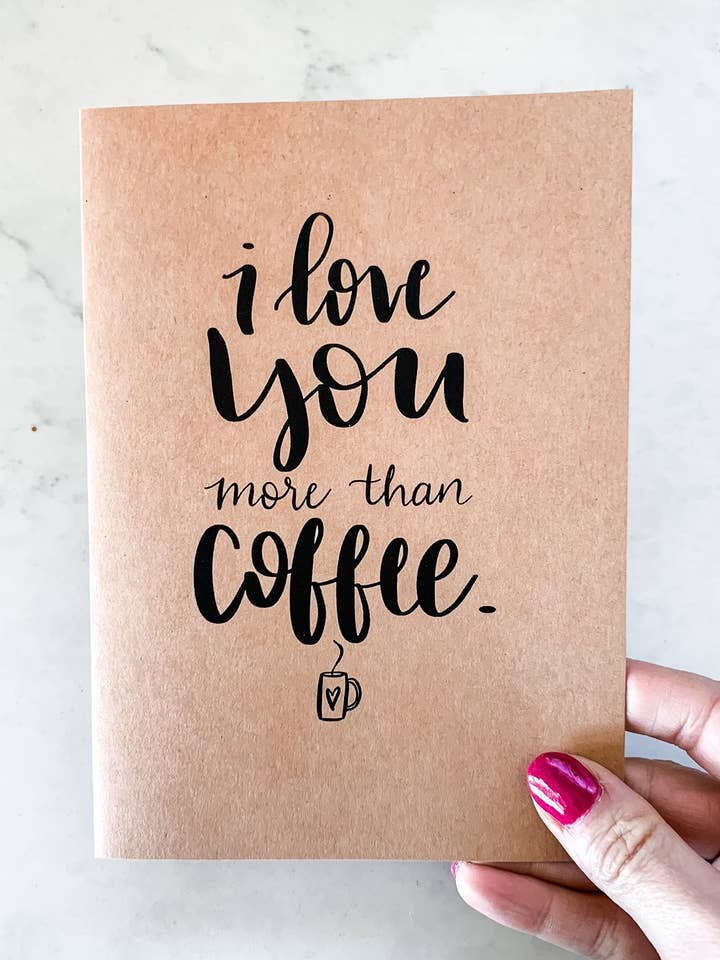 i love
you
more than
coffee.